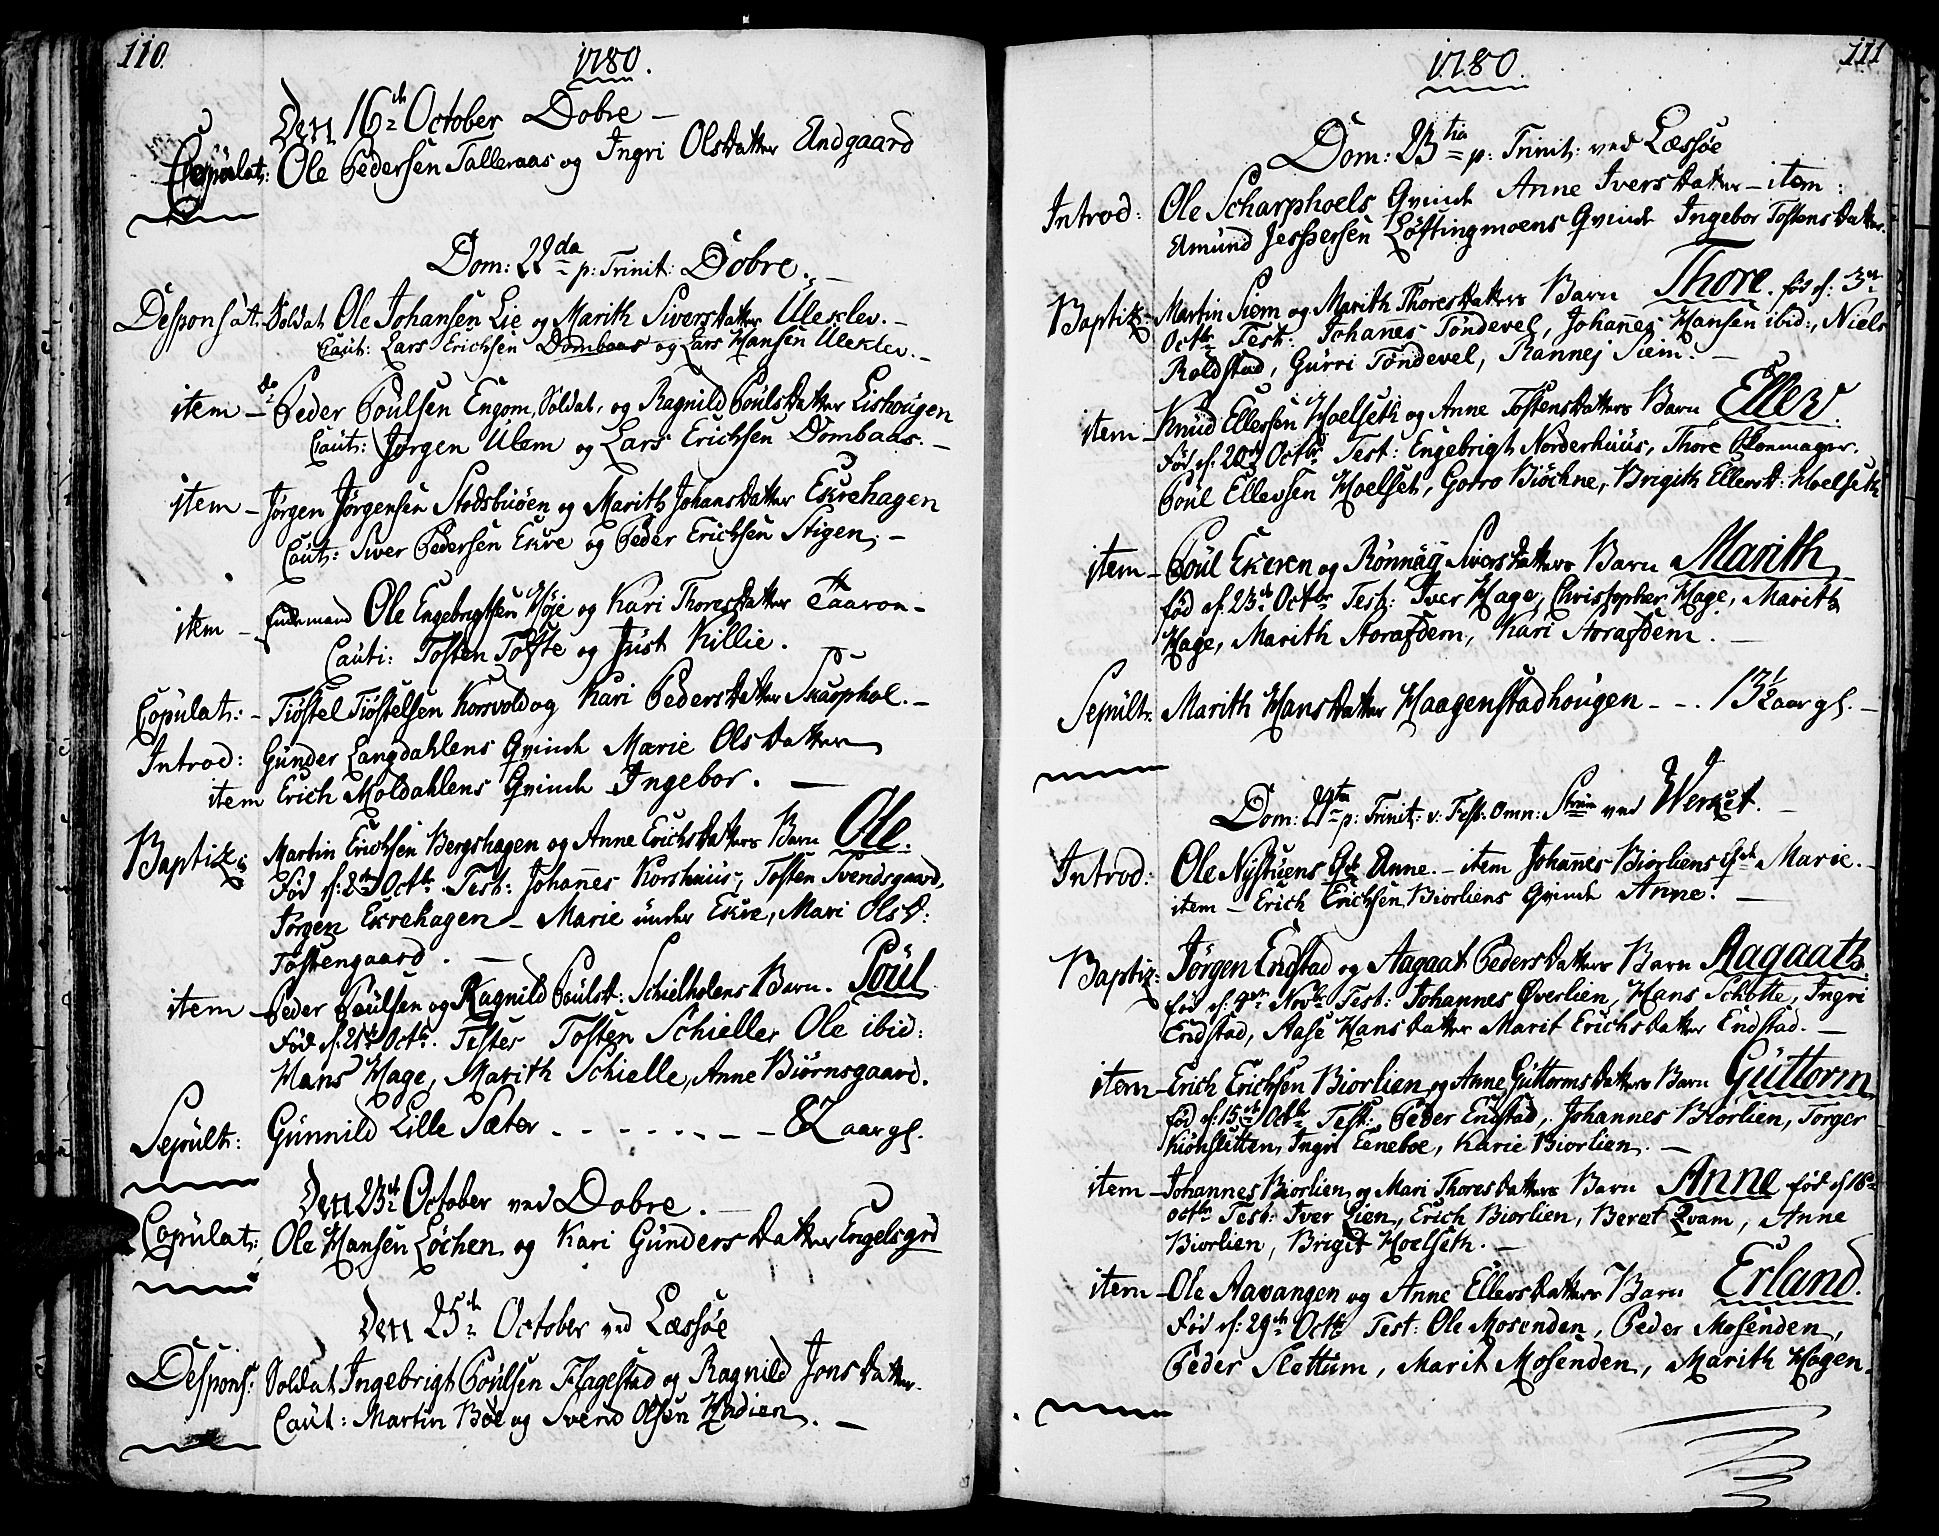 110.
1780.
Den 16de October Dobre –
Copulat: Ole Pedersen Talleraas og Ingri OlsDatter Andgaard
Dom: 22da p: Trinit: Dobre. –
Desponsat. Soldat Ole Johansen Lie og Marith SiversDatter Uleklev. –
Caut: Lars Erichsen Dombaas og Lars Hansen Uleklev. –
item – do Peder Poulsen Engom, Soldat, og Ragnild PoulsDatter Lishougen
Caut: Jørgen Ulem og Lars Erichsen Dombaas. –
item – Jørgen Jørgensen Stodsbuøen og Marith JohansDatter Ekrehagen
Caut: Siver Pedersen Ekre og Peder Erichsen Stigen. –
item – Enkemand Ole Engebrigtsen Høje og Kari ThoresDatter Taaron –
Cauti: Tosten Tofte og Just Killie.
Copulat: – Tiøstel Tiøstelsen Korsvold og Kari PedersDatter Skarphol. –
Introd: Gunder Langdahlens Qvinde Marie OlsDatter
item Erich Moldahlens Qvinde Ingebor. –
Baptiz: Martin Erichsen Bergshagen og Anne ErichsDatters Barn Ole.
Fød d: 2den Octbr. Test: Johannes Korshuus, Tosten Tvendsgaard,
Jørgen Ekrehagen – Marie under Ekre, Mari OlsD:
Tostengaard. –
item – Peder Poulsen og Ragnild PoulsD: Schielholens Barn. Poul
Fød d: 21de Octb. Testes Tosten Schieller Ole ibid:
Hans Hage, Marith Schielle, Anne Biørnsgaard.
Sepult: Gunnild Lille Sæter - - - - - - - 82 aar gl.
Den 23de October ved Dobre. –
Copulat: Ole Hansen Løchen og Kari GundersDatter Engelsgrd
Den 25de October ved Læssøe
Despons: Soldat Ingebrigt Poulsen Flagestad og Ragnild JonsDatter.
Caut: Martin Bøe og Svend Olsen Hndien. –
111
1780.
Dom: 23tia p: Trinit: ved Læssøe
Introd: Ole Scharphoels Qvinde Anne IversDatter – item:
Amund Jespersen Løftingmoens Qvinde Ingebor TostensDatter.
Baptiz: Martin Siem og Marith ThoresDatters Barn Thore. fød d: 3de
Octbr Test: Johannes Tøndevel, Johannes Hansen ibid:, Niels
Roldstad, Gurri Tøndevel, Rannej Siem. –
item – Knud Ellefsen Hoelseth og Anne TostensDatters Barn Ellev.
Fød d: 20de Octbr Test: Engebrigt Norderhuus, Thore Plonmager.
Poul Ellevsen Hoelset, Gorro Biøchne, Brigith EllevsD: Hoelseth
item – Poul Ekeren og Rønnaug SiversDatters Barn Marith
fød d: 23de Octbr Test: Iver Hage, Christopher Hage, Marith
Hage, Marith Storasdem, Kari Storasdem. –
Sepult: Marith HansDatter Haagenstadhougen - - - 13½ aar gl. –
Dom: 24ta p: Trinit: v: Fest: Omn: Strum ved Werket. –
Introd: Ole Nystuens Qv: Anne. – item Johannes Biorliens Qde Marie. –
item – Erich Erichsen Biorliens Qvinde Anne. –
Baptiz: Jørgen Endstad og Aagaat PedersDatters Barn Aagaath.
fød d: 4de Novbr Test: Johannes Øverlien, Hans Schotte, Ingri
Endstad, Aase HansDatter Marit ErichsDatter Endstad. –
item – Erich Erichsen Biorlien og Anne GuttormsDatters Barn Guttorm
fød d: 15de Octbr Test: Peder Endstad, Johannes Biorlien, Torger
Kiønsletten, Ingri Eeneboe, Karie Biorlien. –
item – Johannes Biorlien og Mari ThoresDatters Barn Anne fød d 18de
octbr Test: Iver Lien, Erich Biorlien, Beret Qvam, Anne
Biorlien, Brigit Hoelseth. –
item – Ole Aavangen og Anne EllevsDatters Barn Erland.
Fød d: 29de Octbr Test: Ole Mosenden, Peder Mosenden,
Peder Slettum, Marit Mosenden, Marith Hagen.